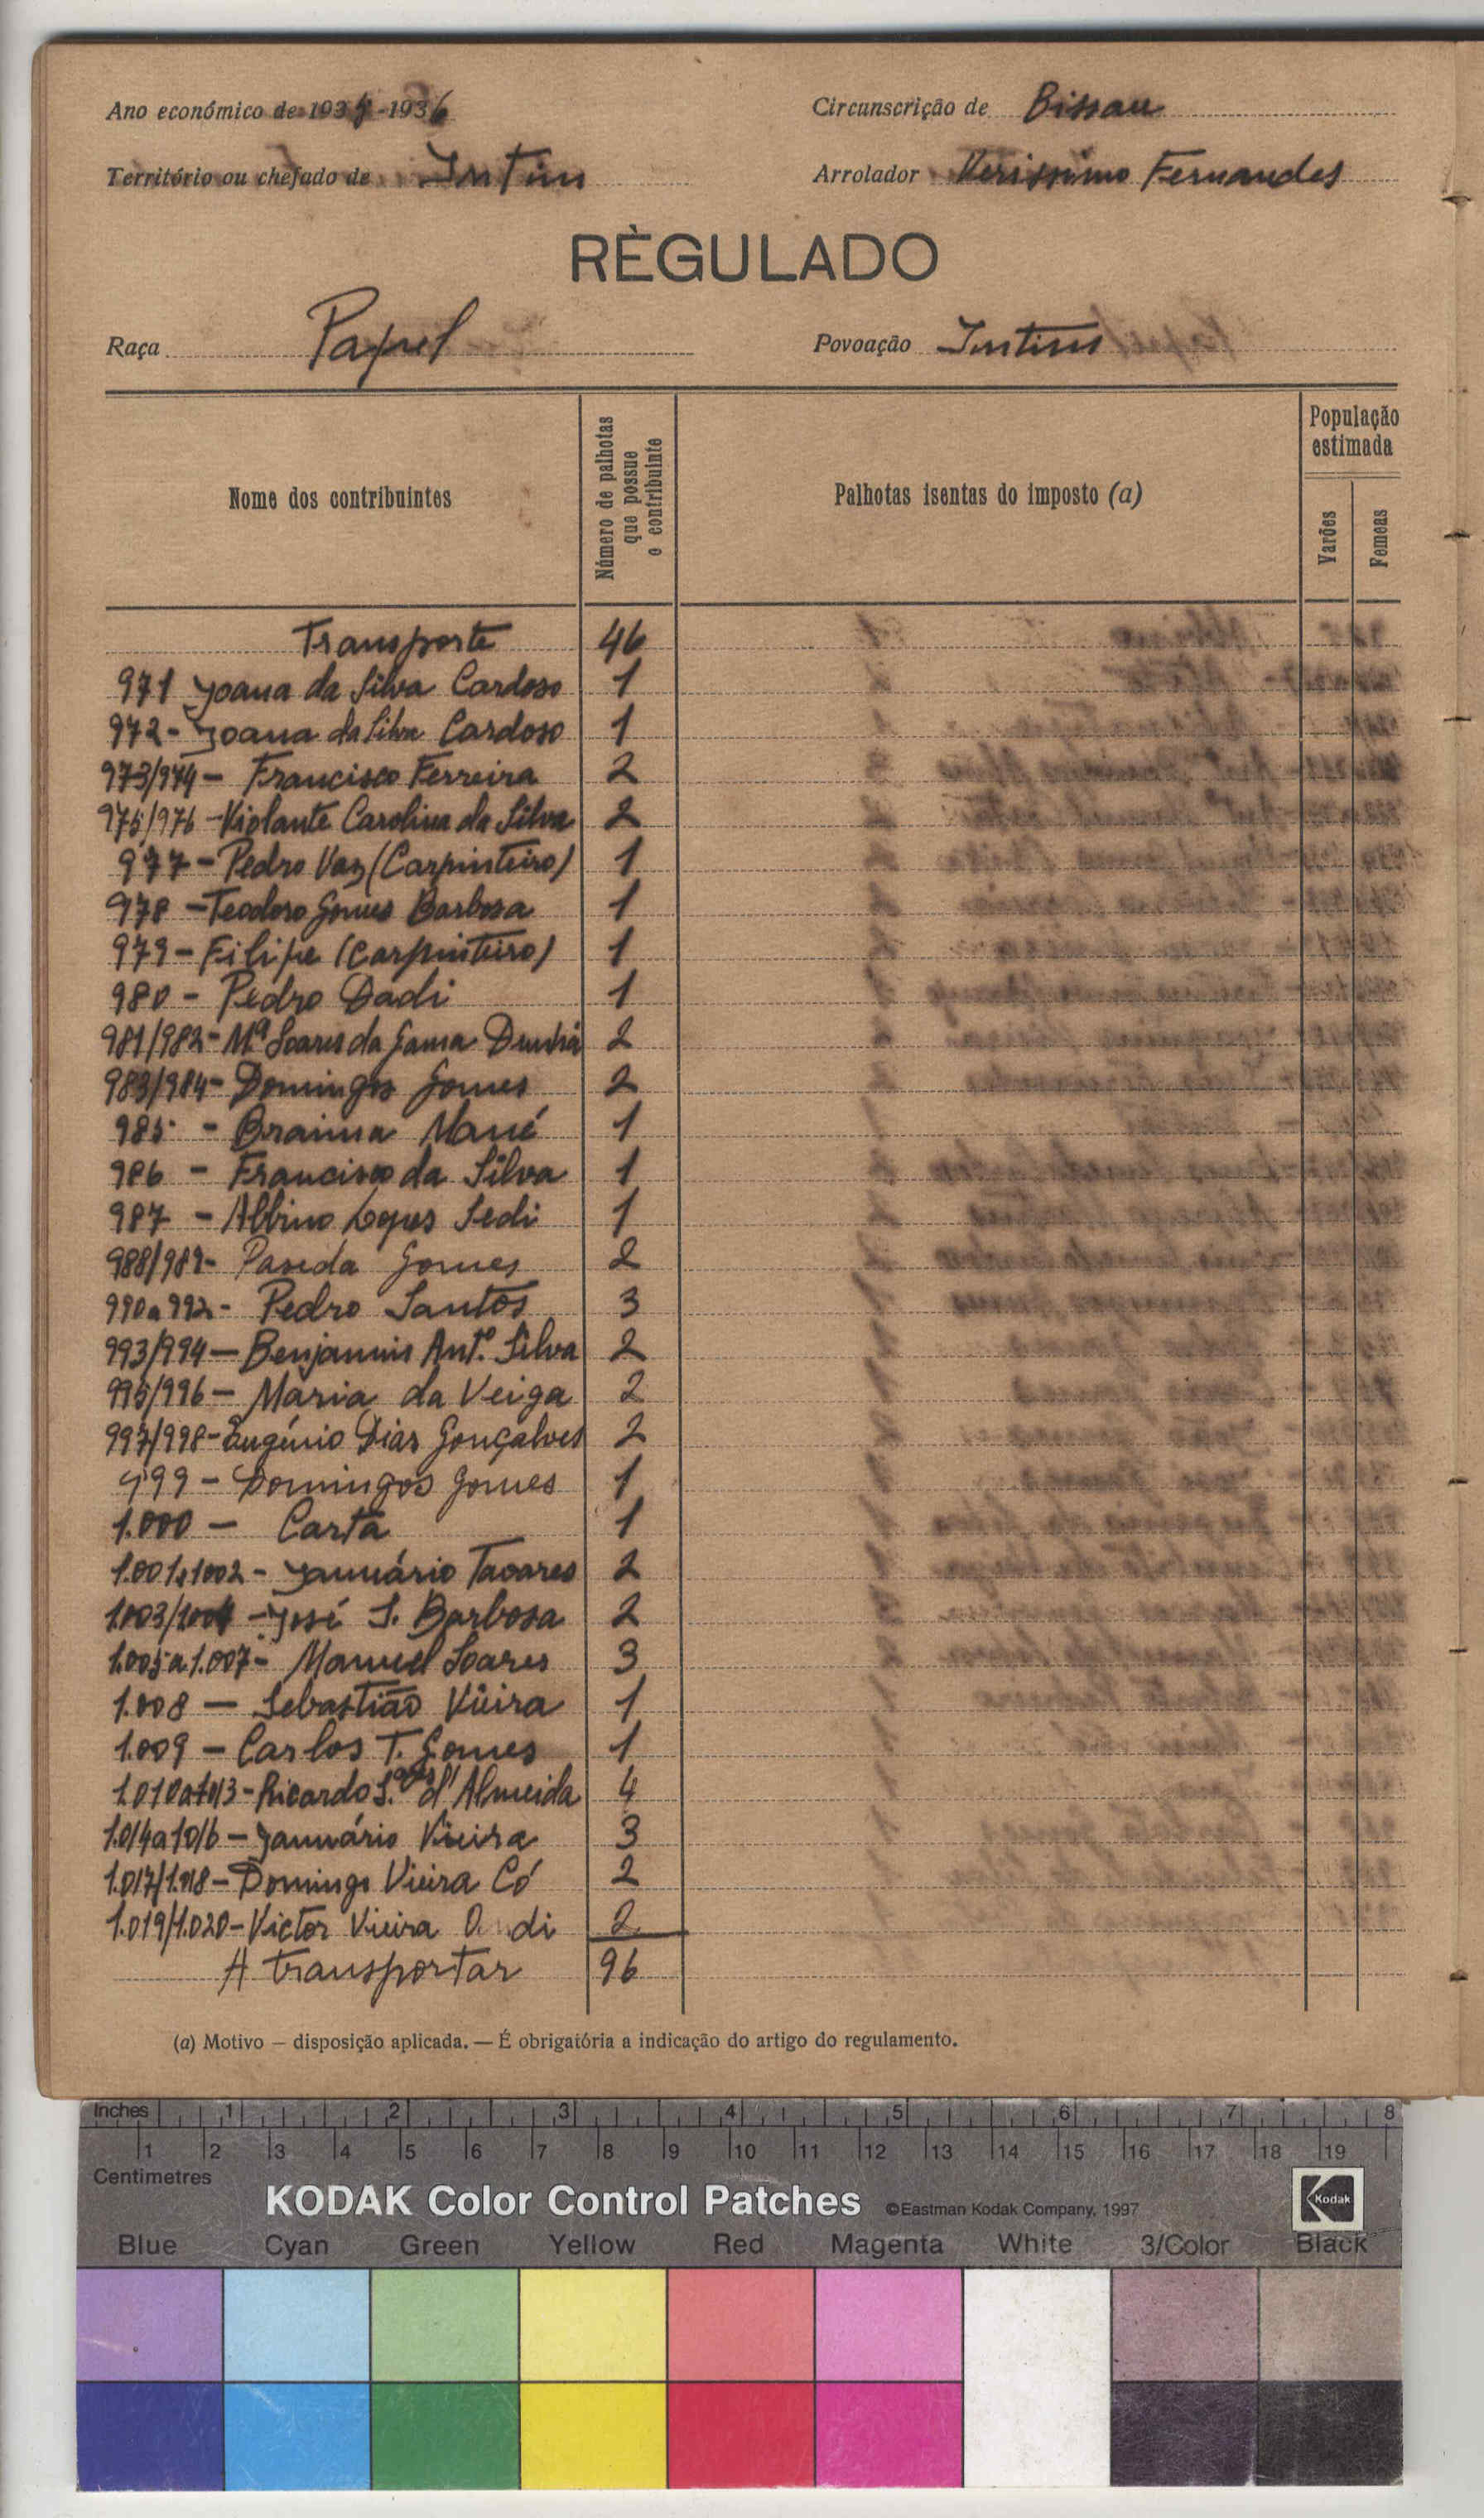 Ano económico de 1935-1936 Circunscrição de Bissau
Território ou chefado de Intim Arrolador Verissimo Fernandes
RÈGULADO
Raça Papel Povoação Intim
Nome dos contribuintes
Número de palhotas que possue o contribuinte
Palhotas isentas do imposto (a)
População estimada
Varões
Femeas
Transporte 46
971 Joana da Silva Cardoso 1
972- Joana da Silva Cardoso 1
973/974- Francisco Ferreira 2
975/976-Violante Carolina da Silva 2
977-Pedro Vaz (Carpinteiro) 1
978-Teodoro Gomes Barbosa 1
979-Filipe (Carpinteiro) 1
980- Pedro Dadi 1
981/982-Mª Soares da Gama 2
983/984-Domingos Gomes 2
985 - Braima Mané 1
986 - Francisco da Silva 1
987 - Albino Lopes Sedi 1
988/989- Gomes 2
990a992- Pedro Santos 3
993/994-Benjamim Antº. Silva 2
995/996- Maria da Veiga 2
997/998-Eugénio Dias Gonçalves 2
999-Domingos Gomes 1
1.000 - Carta 1
1.001/1002-Januário Tavares 2
1.003/1004-José S. Barbosa 2
1.005a1.007- Manuel Soares 3
1.008 - Sebastião Vieira 1
1.009 - Carlos T. Gomes 1
1.010a1013-Ricardo d'Almeida 4
1.014a1016-Januário Vieira 3
1.017/1.018-Domingo Vieira Có 2
1.019/1.020-Victor Vieira 2
A transportar 96
(a) Motivo — disposição aplicada. — É obrigatória a indicação do artigo do regulamento.
Inches 1 2 3 4 5 6 7 8
1 2 3 4 5 6 7 8 9 10 11 12 13 14 15 16 17 18 19
Centimetres
KODAK Color Control Patches ©Eastman Kodak Company, 1997 Kodak
Blue Cyan Green Yellow Red Magenta White 3/Color Black